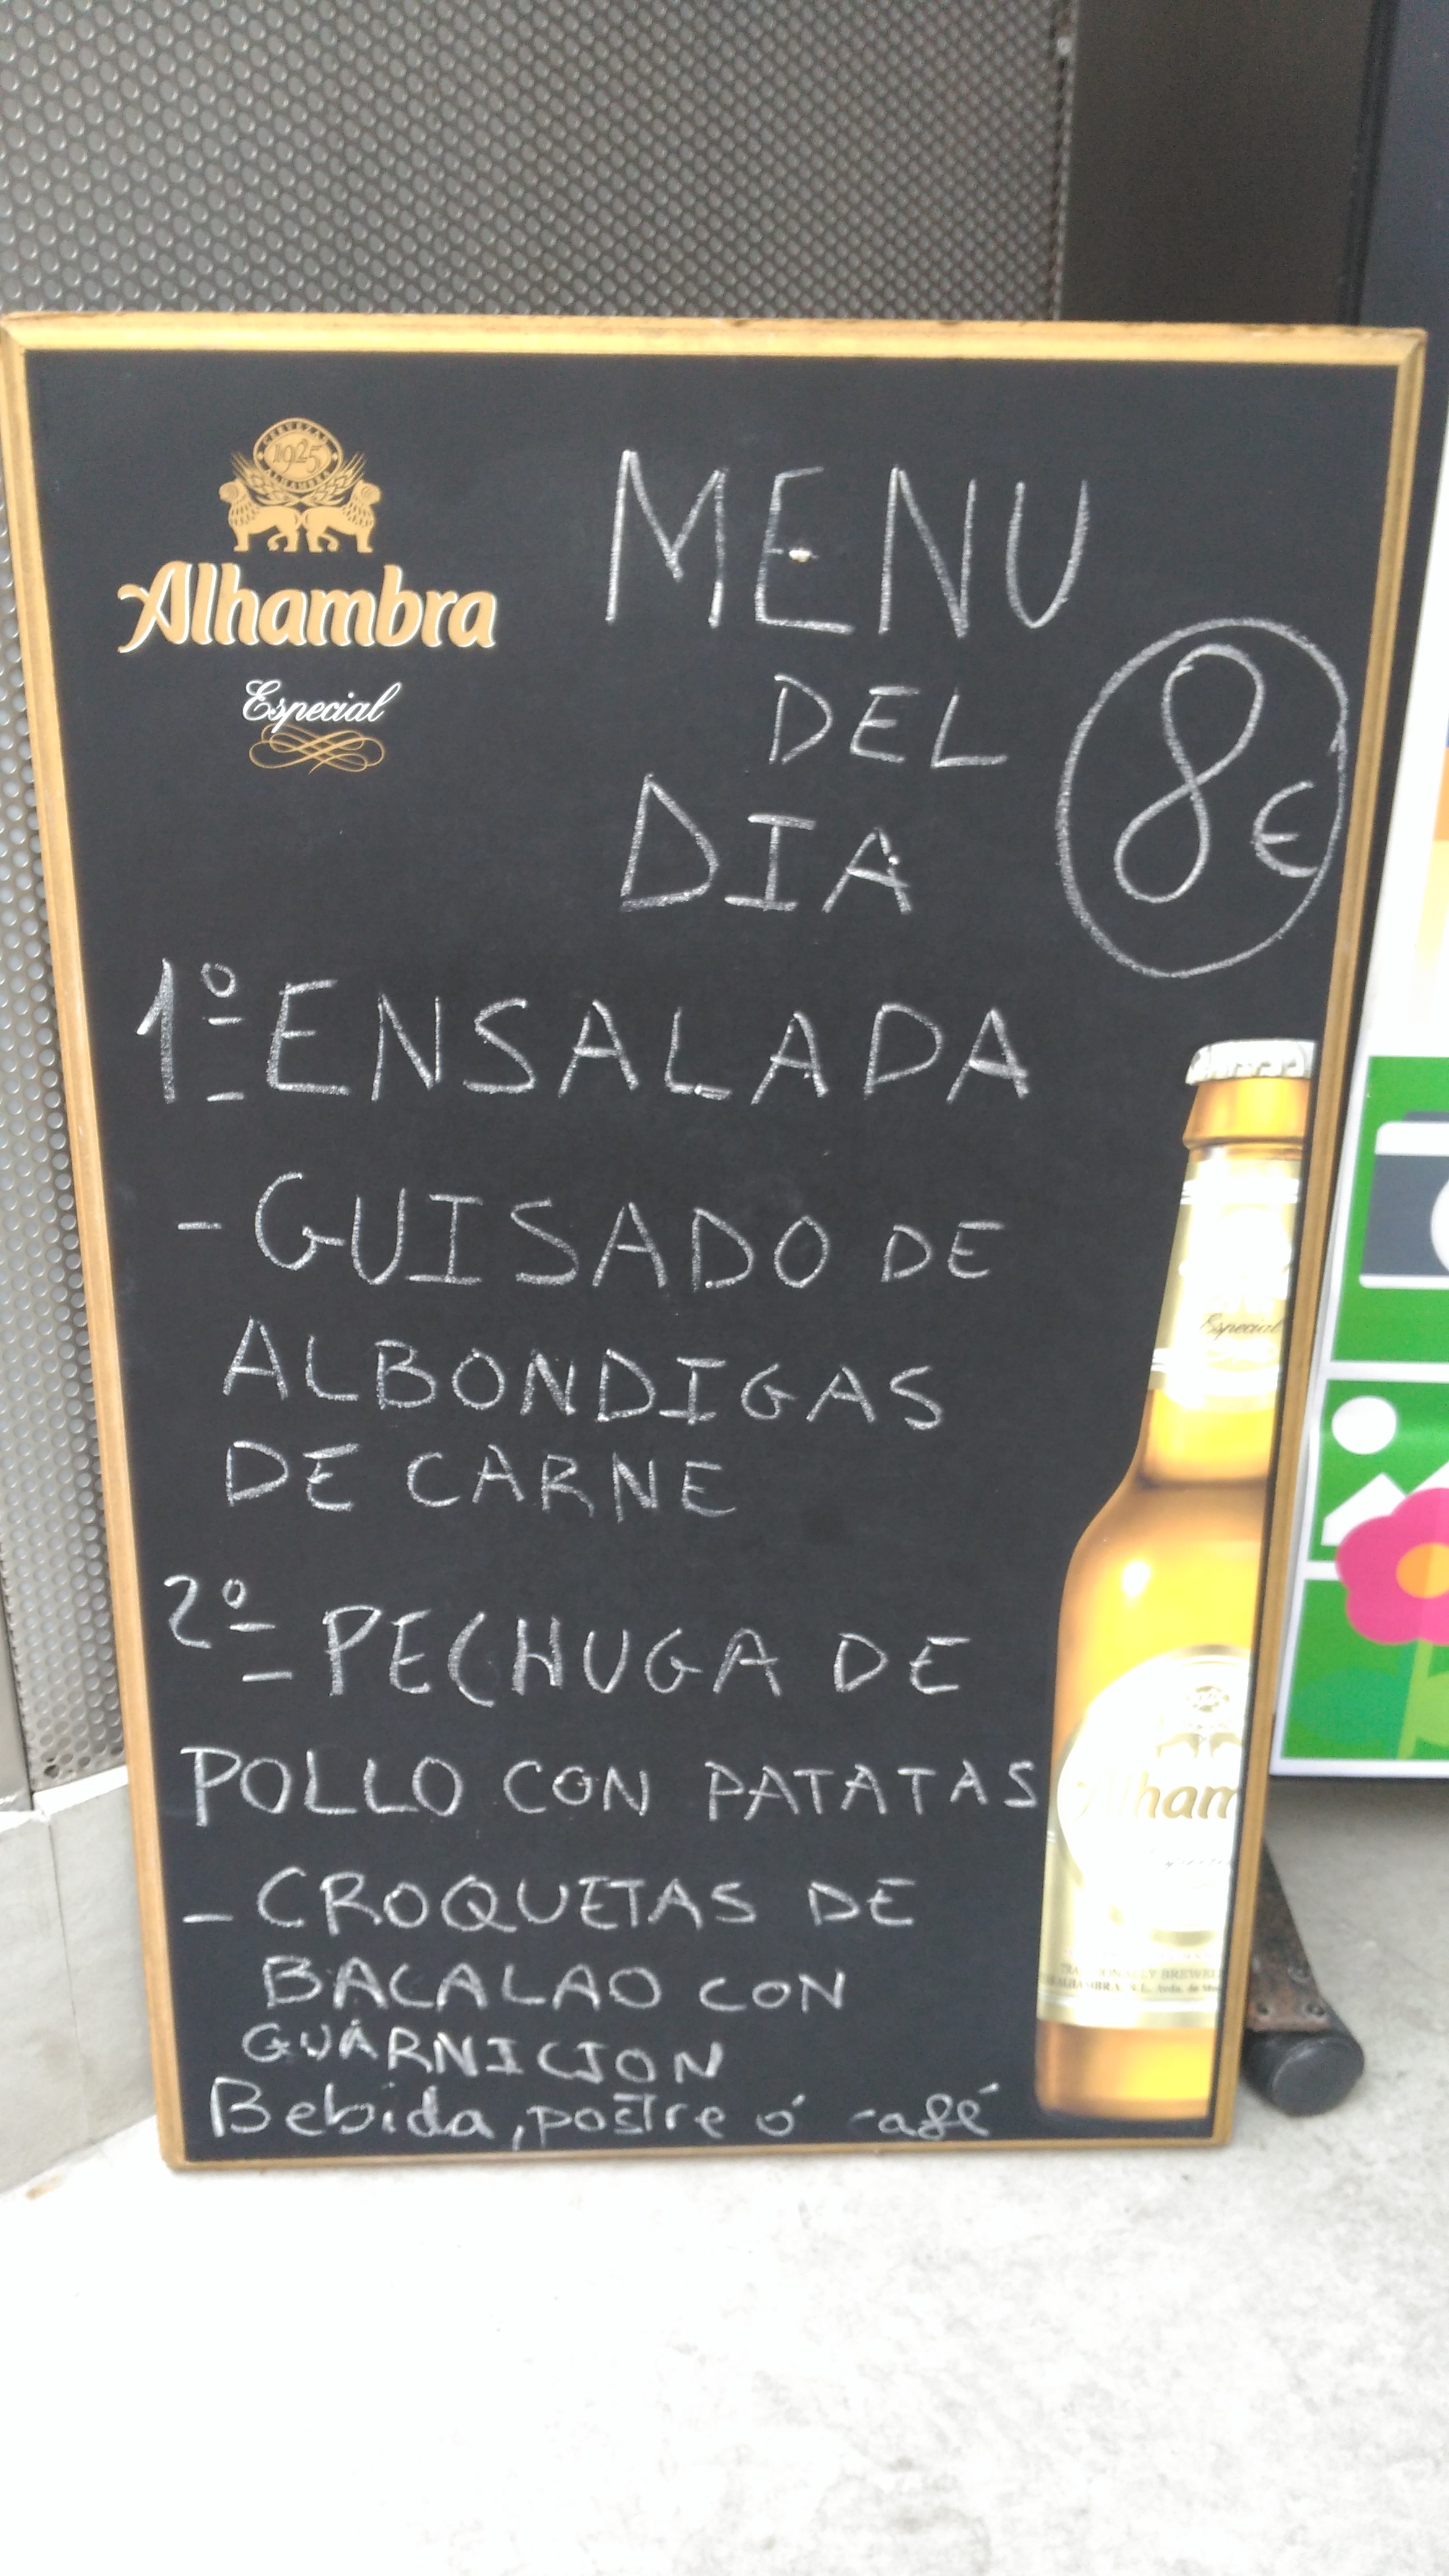 CERVEZAS
1925
ALHAMBRA
Alhambra
Especial
MENU
DEL
DIA
8€
1º ENSALADA
- GUISADO DE
ALBONDIGAS
DE CARNE
2º - PECHUGA DE
POLLO CON PATATAS
- CROQUETAS DE
BACALAO CON
GUARNICION
Bebida, postre ó café
Especial
Alham